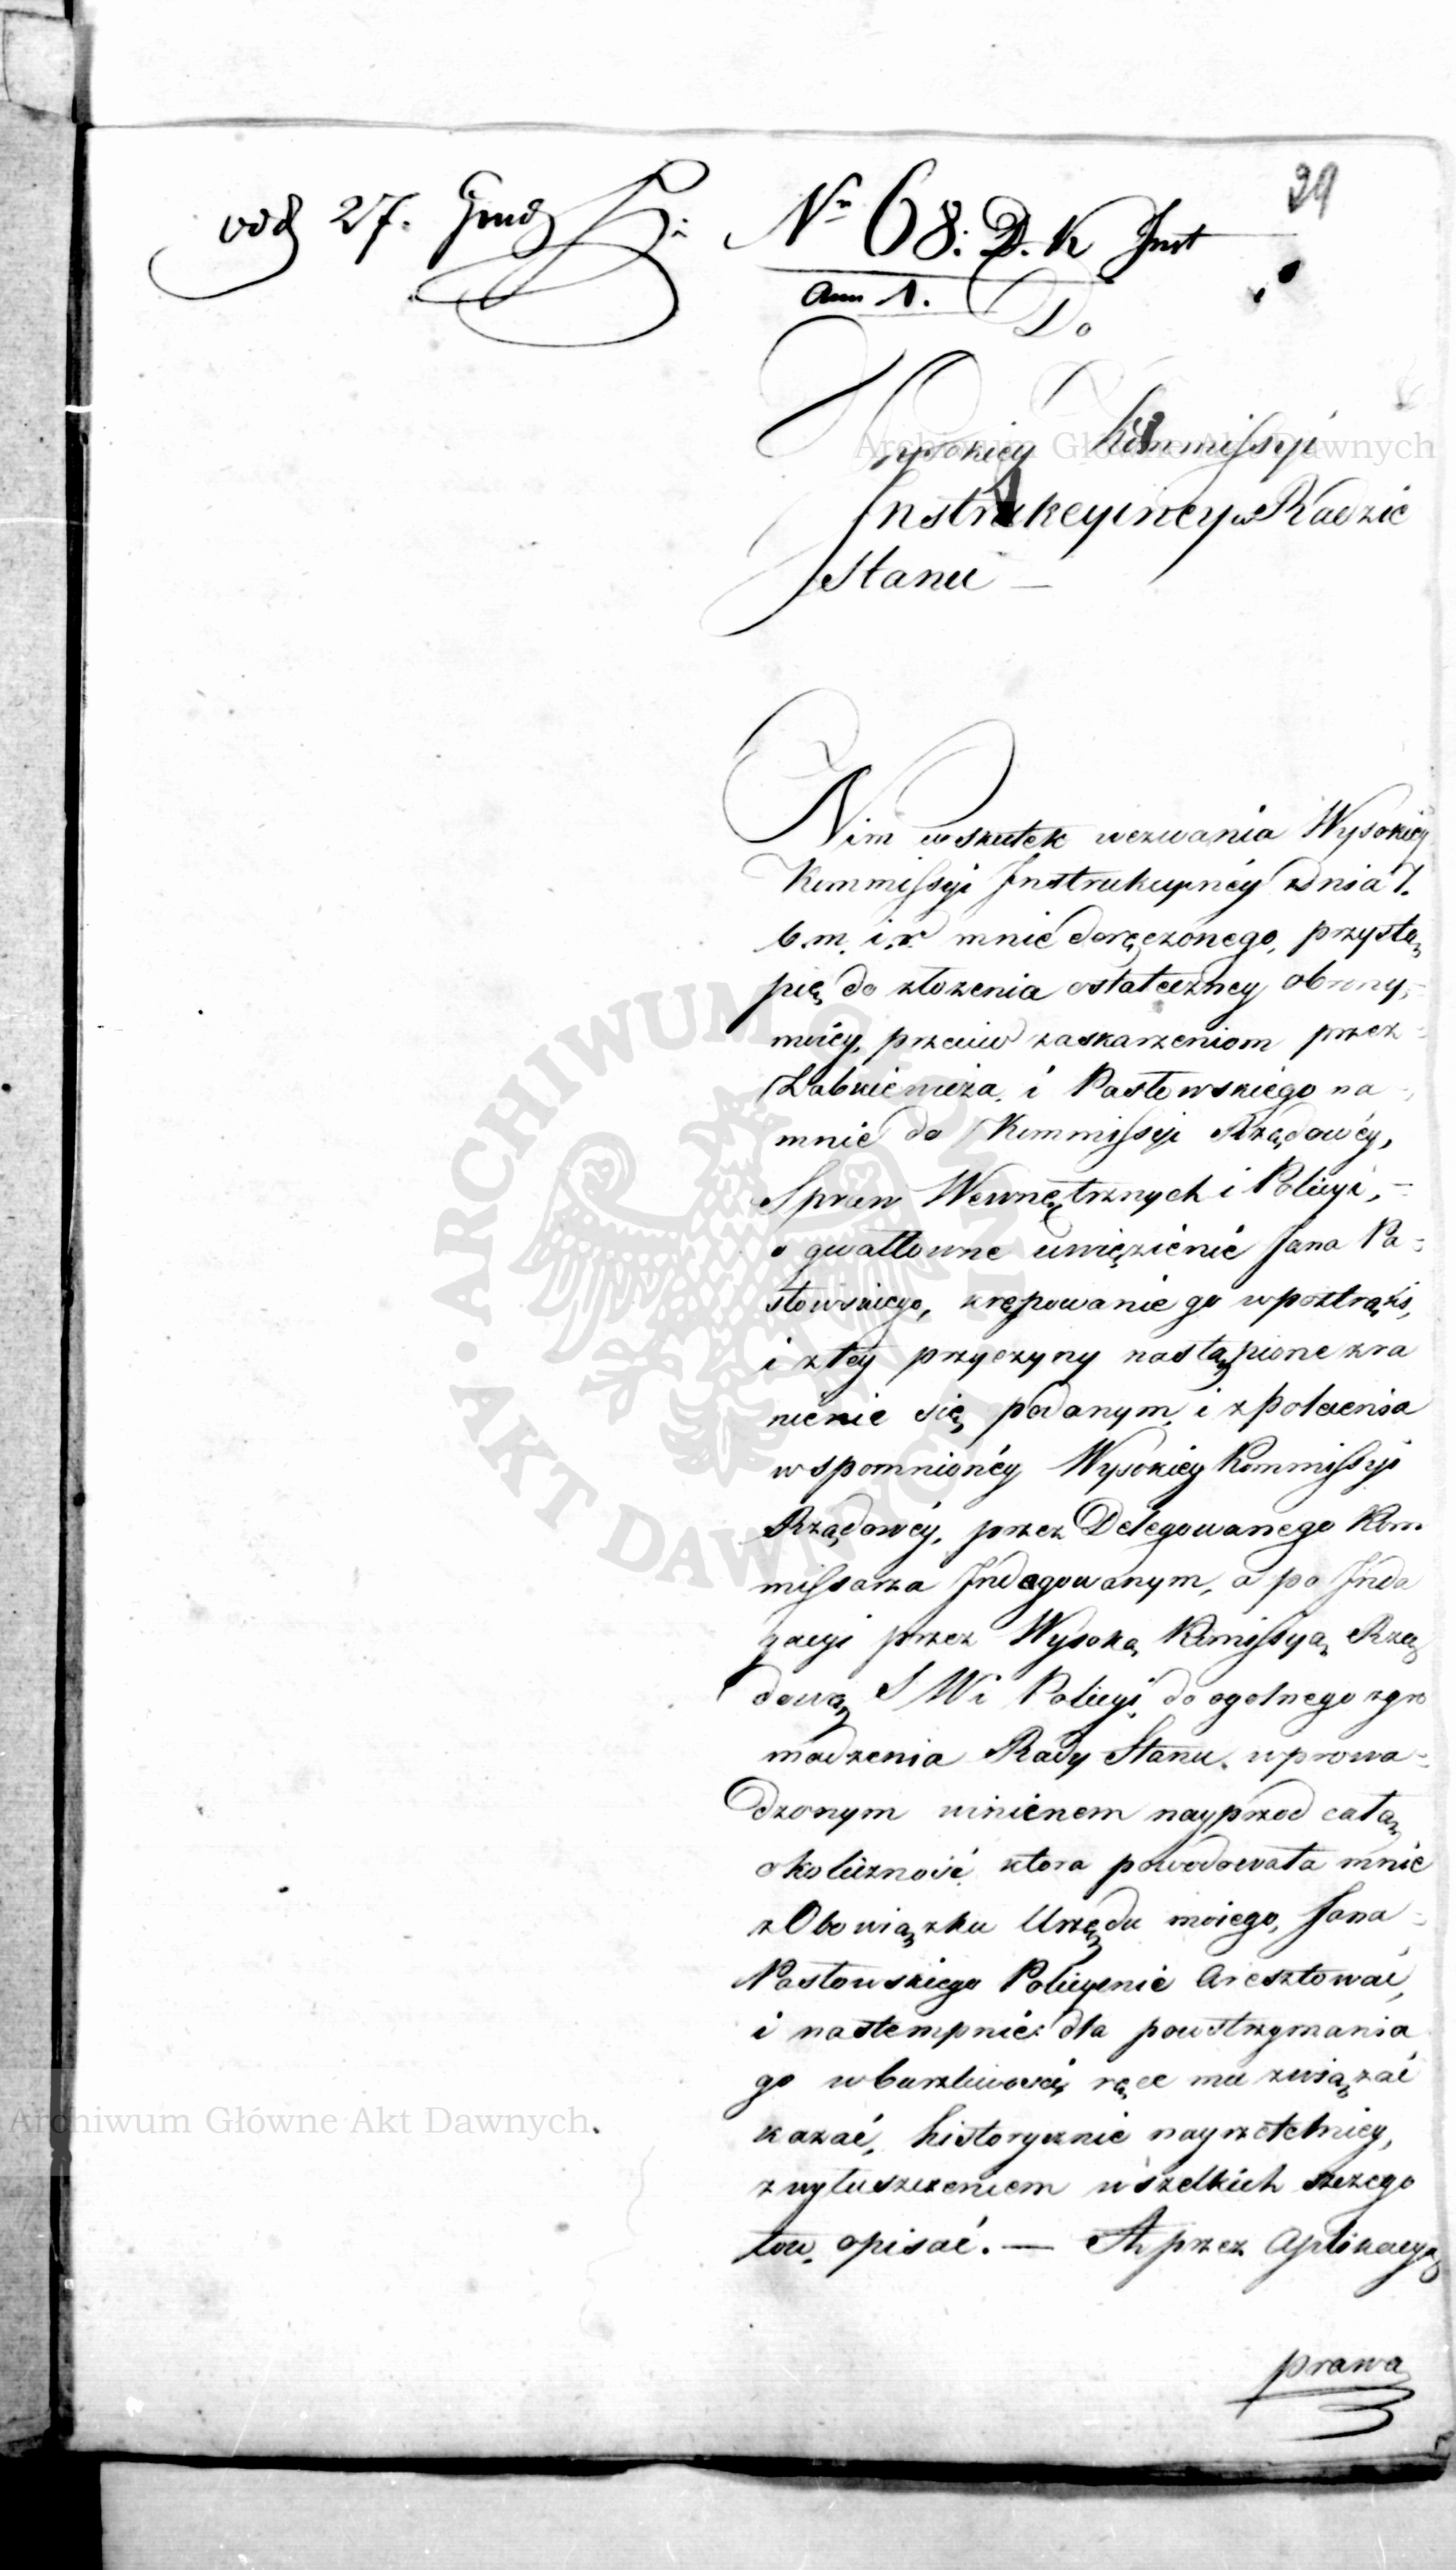 odd 27. Grud
Nr 68. D. K Inst
29
Ann 1.
Do
Wysokiey Kommissyi
Instrukcyiney w Radzie
Stanu —
Nim wskutek wezwania Wysokiey
Kommissyi Instrukcyinéy z dnia 7.
b.m. i r. mnie doręczonego, przystą
pię do złożenia ostateczney obrony
moiéy, przeciw zaskarzeniom przez
i Pastowskiego na
mnie do Kommissyi Rządowéy,
Spraw Wewnętrznych i Policyi, -
o gwałtowne uwięzienie Jana Pa-
stowskiego, krępowanie go w postronki,
i z tey przyczyny nastąpione zra
nienie się podanym, i z polecenia
wspomnionéy Wysokiey Kommissyi
Rządowéy, przez Delegowanego Kom
missarza Indagowanym, a po Inda
gacyi przez Wysoką Kommissyą Rzą
dową S W i Policyi, do ogolnego zgro
madzenia Rady Stanu, wprowa-
dzonym winienem nayprzod całą
okoliczność ktora powodowała mnie
z Obowiązku Urzędu moiego, Jana
Pastowskiego Policyinie Aresztować,
i nastempnie dla powstrzymania
go w burzliwości, ręce mu związać
kazać, historycznie nayrzetelniey,
z wyłuszczeniem wszelkich szczego
łow, opisać. — A przez Aplikacyą
prawa
Archiwum Główne Akt Dawnych
ARCHIWUM GŁÓWNE
AKT DAWNYCH
Archiwum Główne Akt Dawnych